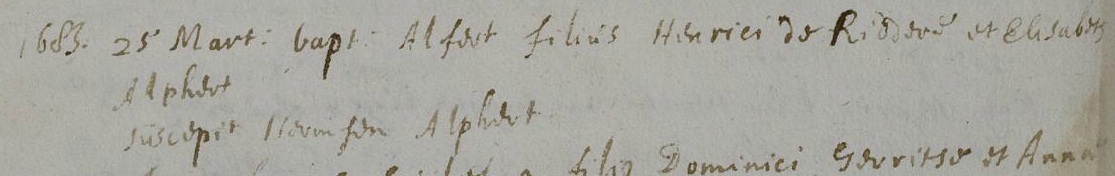 1683. 25 Mart: bapt: Alfert filius Henrici de Ridder et Elisabeth
Alphert
suscepit Hermsen Alphert
filia Dominici Gerritse et Anna